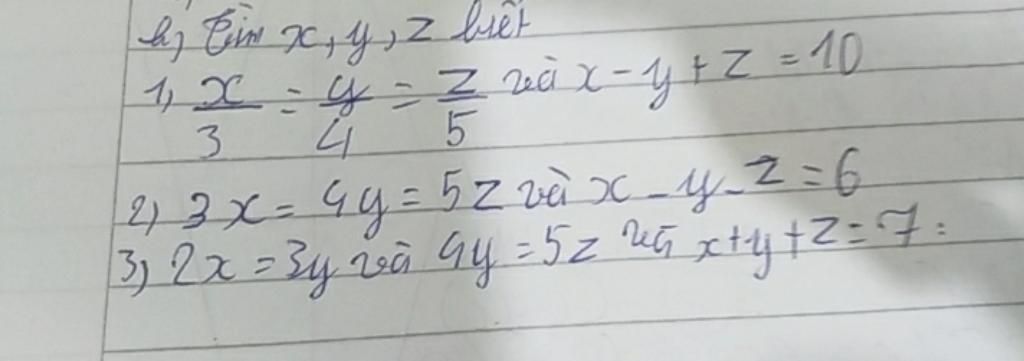 b) Tìm x, y, z biết
1) x/3 = y/4 = z/5 và x - y + z = 10
2) 3x = 4y = 5z và x - y - z = 6
3) 2x = 3y và 4y = 5z và x + y + z = 7.